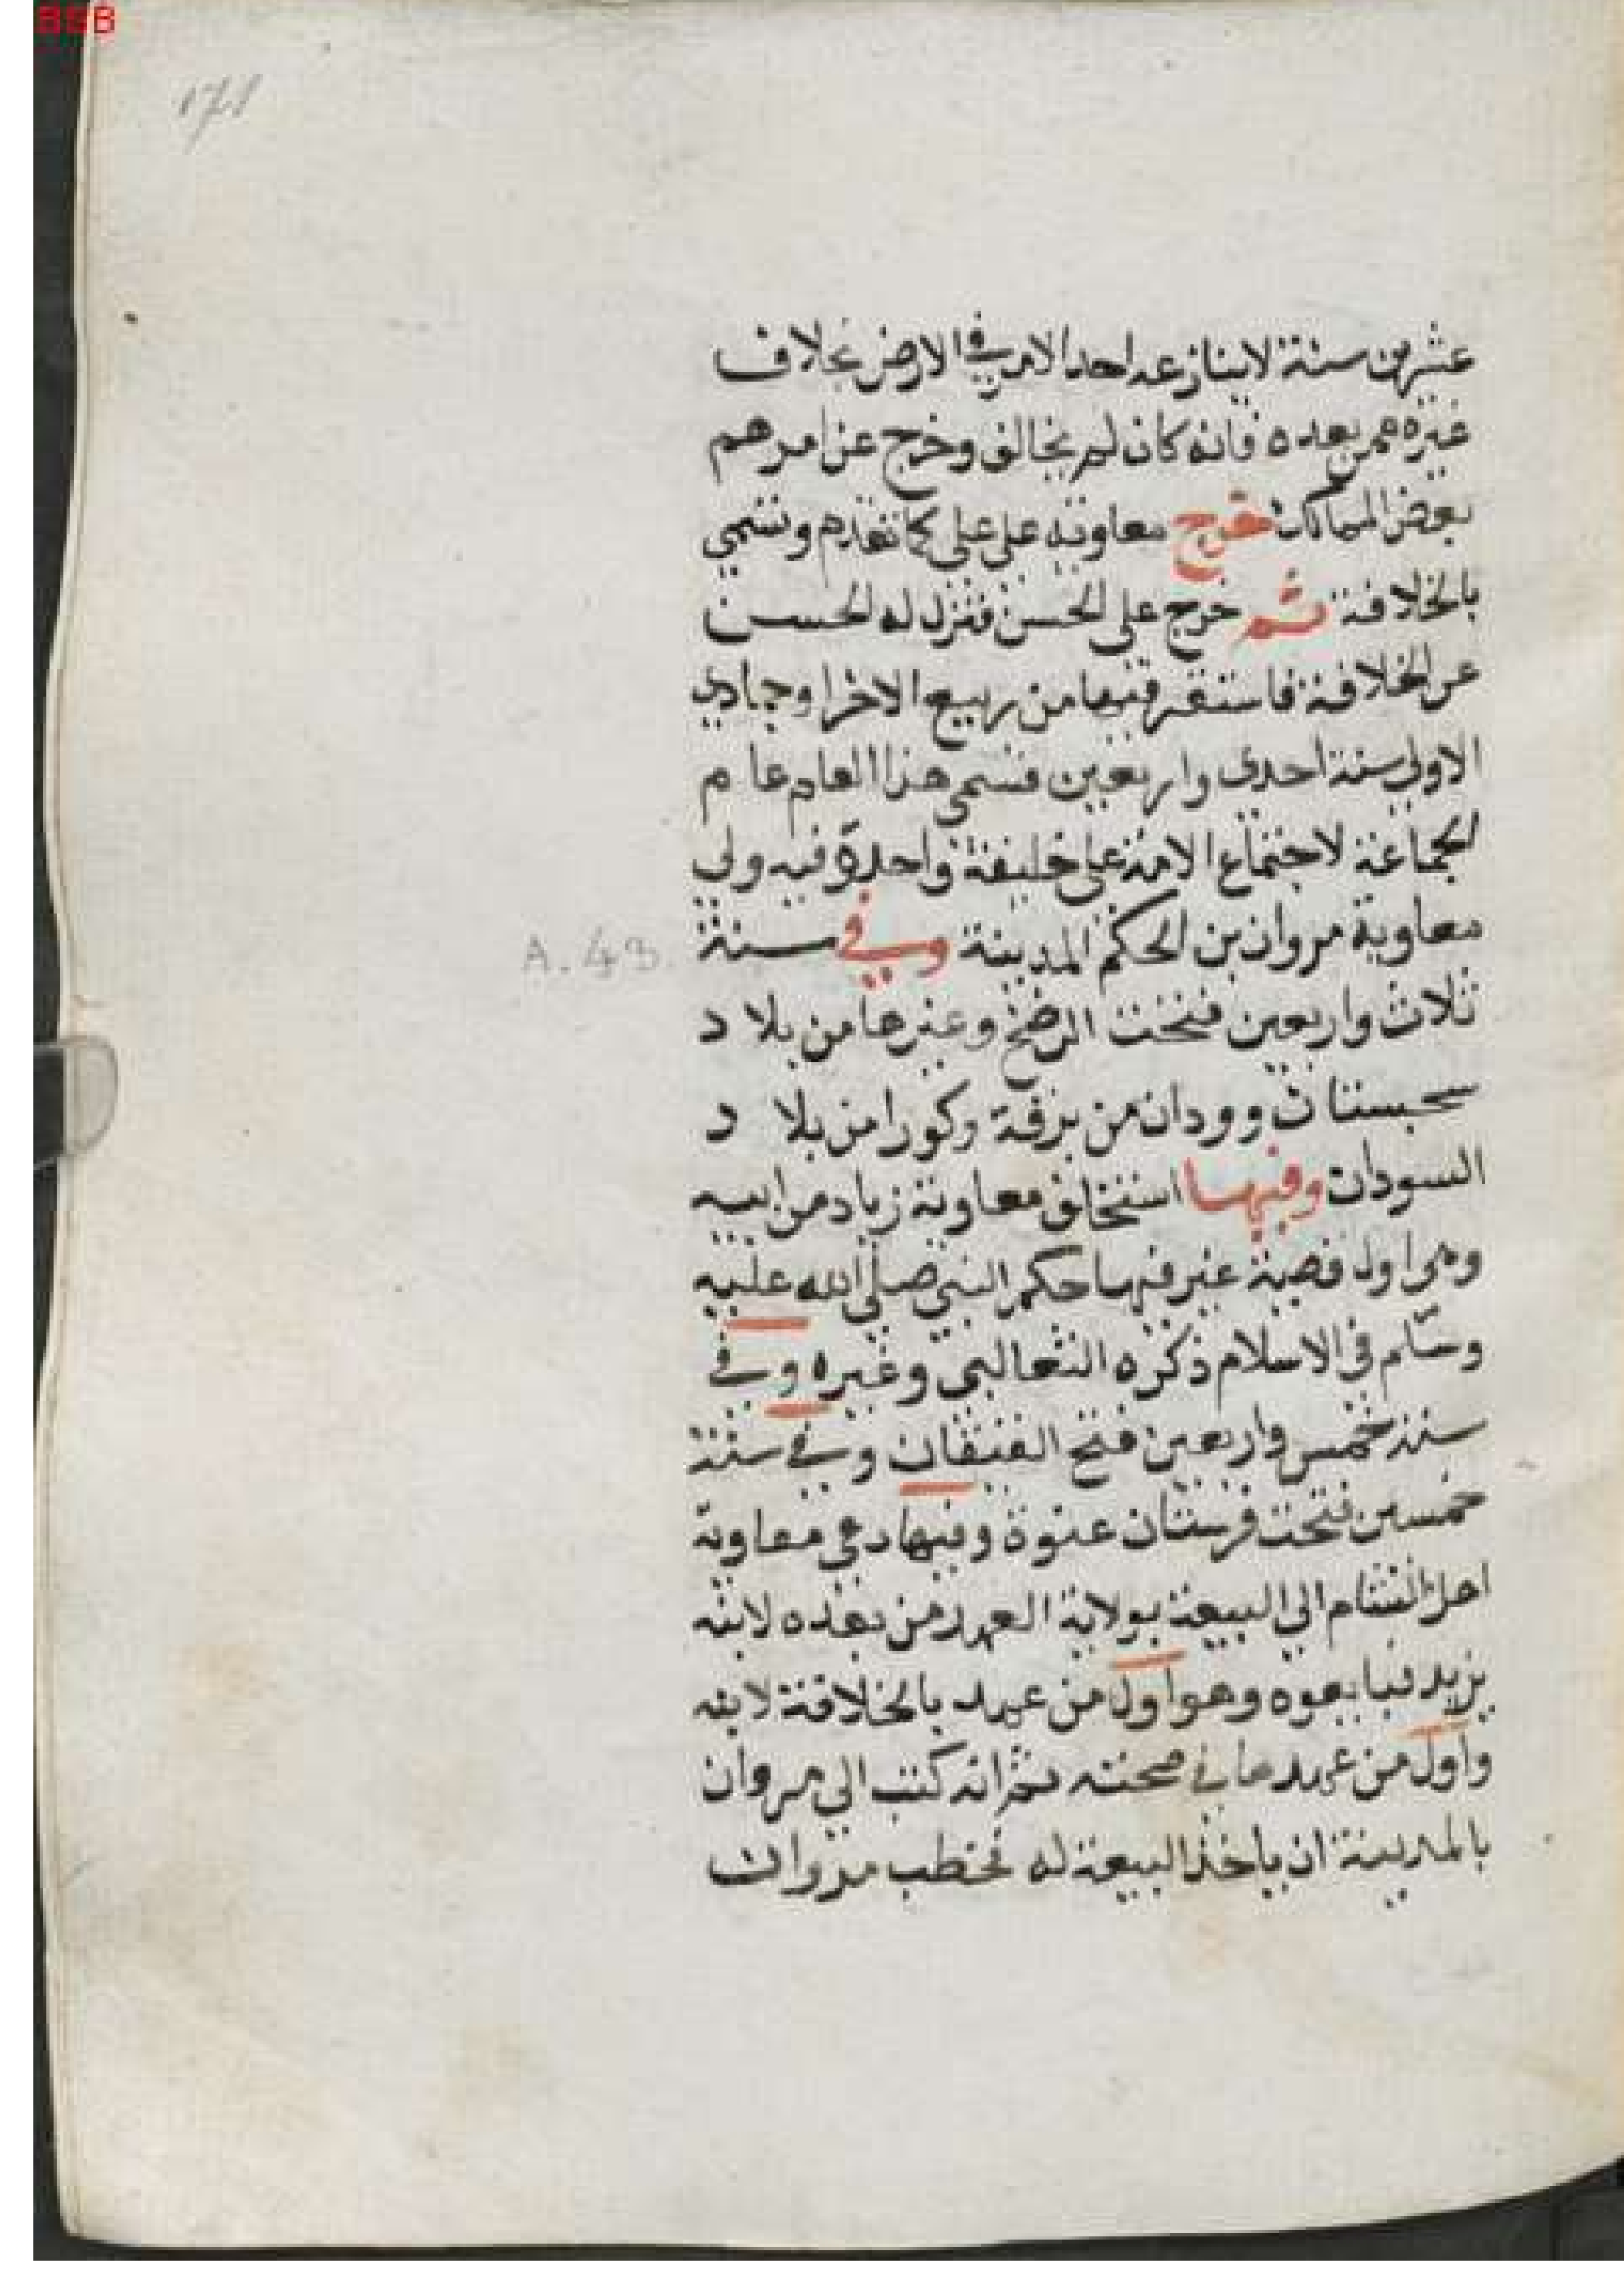 BSB
171
عشرين سنة لاينازعه احد الامر في الارض بخلاف
غيره ممن بعده فانه كان لهم مخالف وخرج عن امرهم
بعض الممالك خرج معاوية على علي كما تقدم وتسمي
بالخلافة ثم خرج علي الحسن فنزل له الحسن
عن الخلافة فاستقر فيها من ربيع الاخر او جمادي
الاولي سنة احدي واربعين فسمي هذا العام عام
الجماعة لاجتماع الامة علي خليفة واحد وفيه ولي
معاوية مروان بن الحكم المدينة وفي سنة
A. 43.
ثلاث واربعين فتحت الرخج وغيرها من بلاد
سجستان وودان من برقة وكورا من بلاد
السودان وفيها استخلف معاوية زياد من ابيه
وهي اول قضية غير فيها حكم النبي صلي الله عليه
وسلم في الاسلام ذكره الثعالبي وغيره وفي
سنة خمس واربعين فتح القيقان وفي سنة
خمسين فتحت قرستان عنوة وفيها دعي معاوية
اهل الشام الي البيعة بولاية العهد من بعده لابنه
يزيد فبايعوه وهو اول من عهد بالخلافة لابنه
واول من عهد بها في صحته ثم انه كتب الي مروان
بالمدينة ان ياخذ البيعة له فخطب مروان